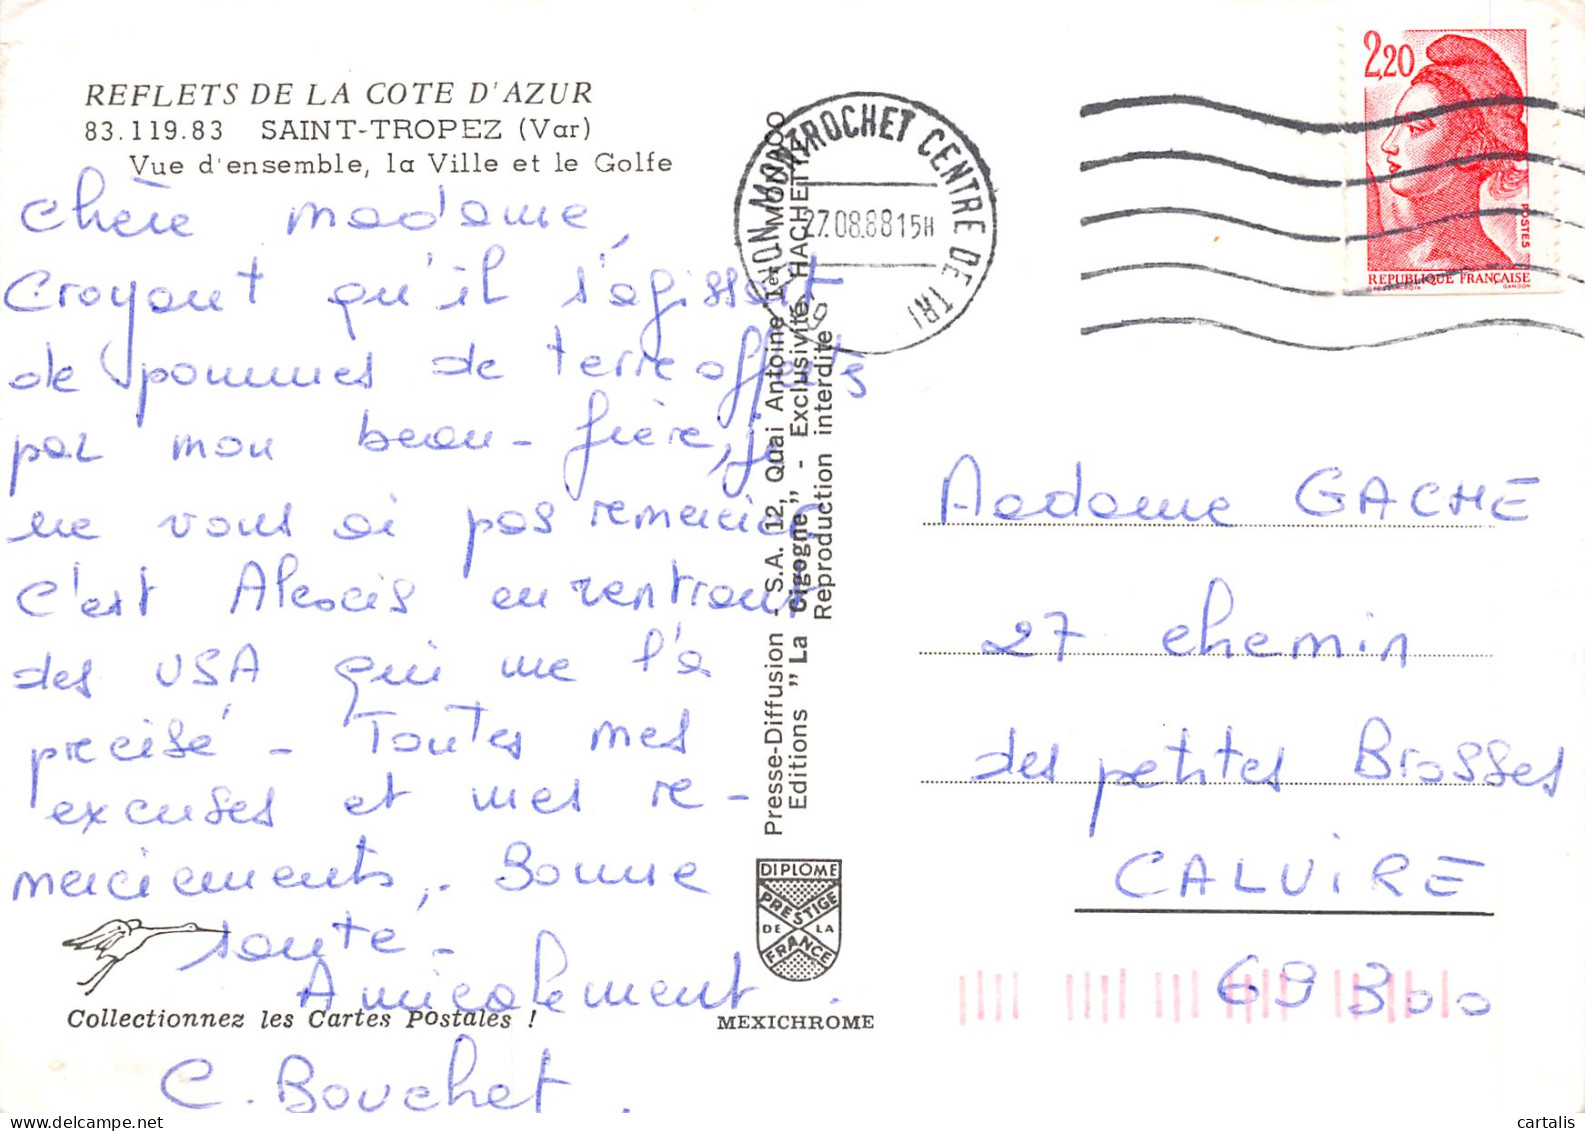 REFLETS DE LA COTE D'AZUR
83.119.83 SAINT-TROPEZ (Var)
Vue d'ensemble, la Ville et le Golfe
Chère madame,
Croyant qu'il s'agissait
de pommes de terre offerts
par mon beau-frère, je
ne vous ai pas remercier
c'est Alexis en rentrant
des USA qui me l'a
précisé - Toutes mes
excuses et mes re-
merciements. Bonne
santé -
Amicalement.
C. Bouchet.
Collectionnez les Cartes Postales !
Presse-Diffusion - S.A. 12, Quai Antoine 1er MONACO
Editions "La Cigogne" - Exclusivité HACHETTE
Reproduction interdite
DIPLOME
PRESTIGE
DE LA
FRANCE
MEXICHROME
LYON MONTROCHET CENTRE DE TRI
27.08.88 15H
2,20
POSTES
REPUBLIQUE FRANÇAISE
GANDON
Madame GACHE
27 chemin
des petites Brosses
CALUIRE
69 300
cartalis